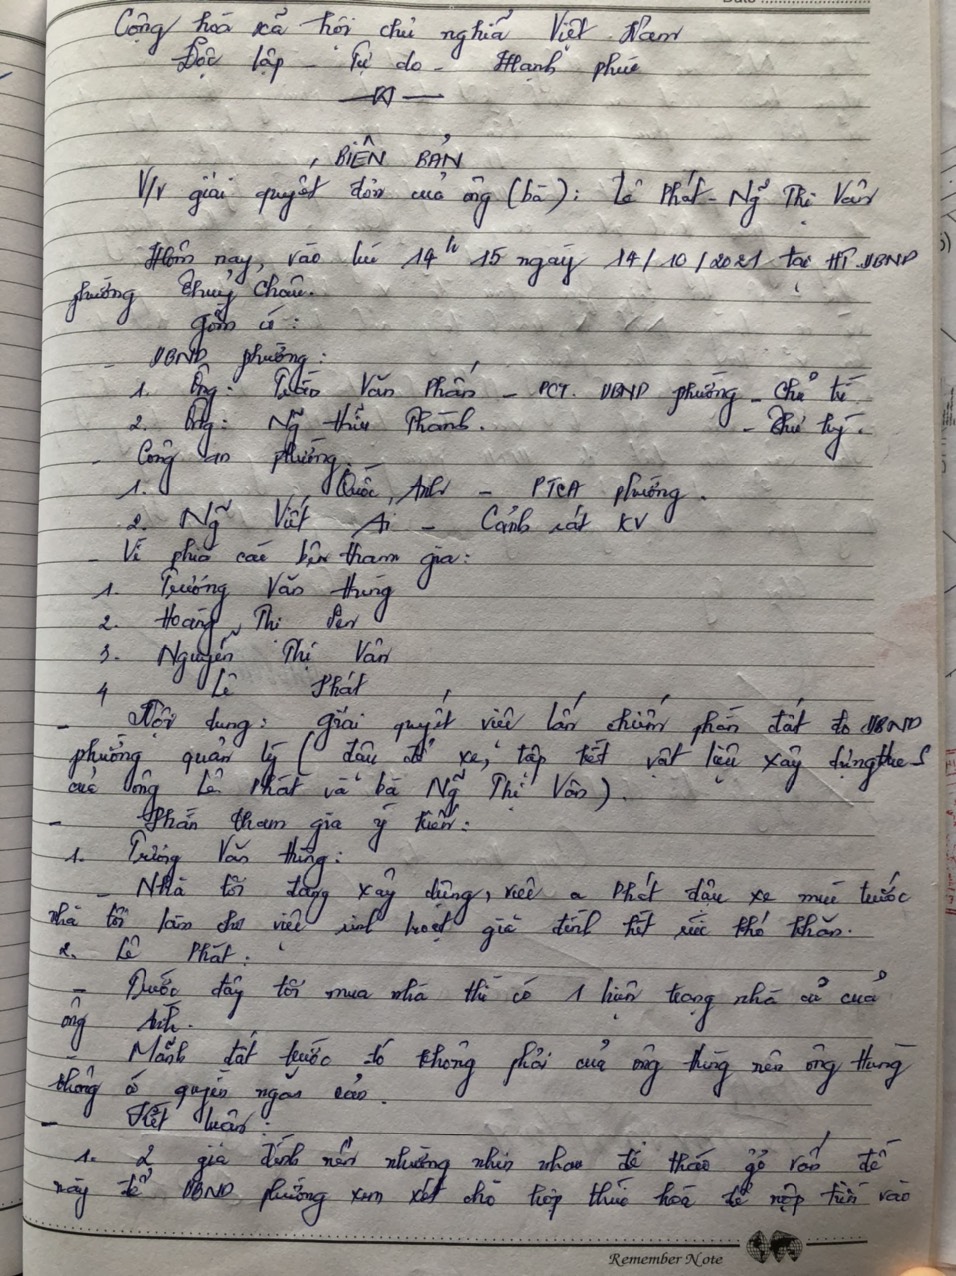 Cộng hoà xã hội chủ nghĩa Việt Nam
Độc lập - Tự do - Hạnh phúc
BIÊN BẢN
V/v giải quyết đơn của ông (bà): Lê Phát - Ng̃ Thị Vân
Hôm nay, vào lúc 14h 15 ngày 14/10/2021 tại HT UBND
phường Thuỷ Châu.
gồm có:
- UBND phường:
1. Ông: Văn Phấn - PCT. UBND phường - Chủ trì
2. Ông: Ng̃ Hữu Thành. - Thư ký.
- Công an phường
1. Quốc Anh - PTCA phường.
2. Ng̃ Viết Ai - Cảnh sát KV
- Về phía các bên tham gia:
1. Trương Văn Hùng
2. Hoàng Thị
3. Nguyễn Thị Vân
4 Lê Phát
- Nội dung: giải quyết việc lấn chiếm phần đất do UBND
phường quản lý (đậu đỗ xe, tập kết vật liệu xây dựng
của ông Lê Phát và bà Ng̃ Thị Vân).
- Phần tham gia ý kiến:
1. Trương Văn Hùng:
- Nhà tôi đang xây dựng, việc a Phát đậu xe múc trước
nhà tôi làm cho việc sinh hoạt gia đình hết sức khó khăn.
2. Lê Phát:
- Trước đây tôi mua nhà thì có 1 hiện trạng nhà cũ của
ông
- Mảnh đất trước đó không phải của ông Hùng nên ông Hùng
không có quyền ngăn cản.
- Kết luận:
1. 2 gia đình nên nhường nhịn nhau để tháo gỡ vấn đề
này để UBND phường xem xét cho hợp thức hoá để nộp tiền vào
Remember Note